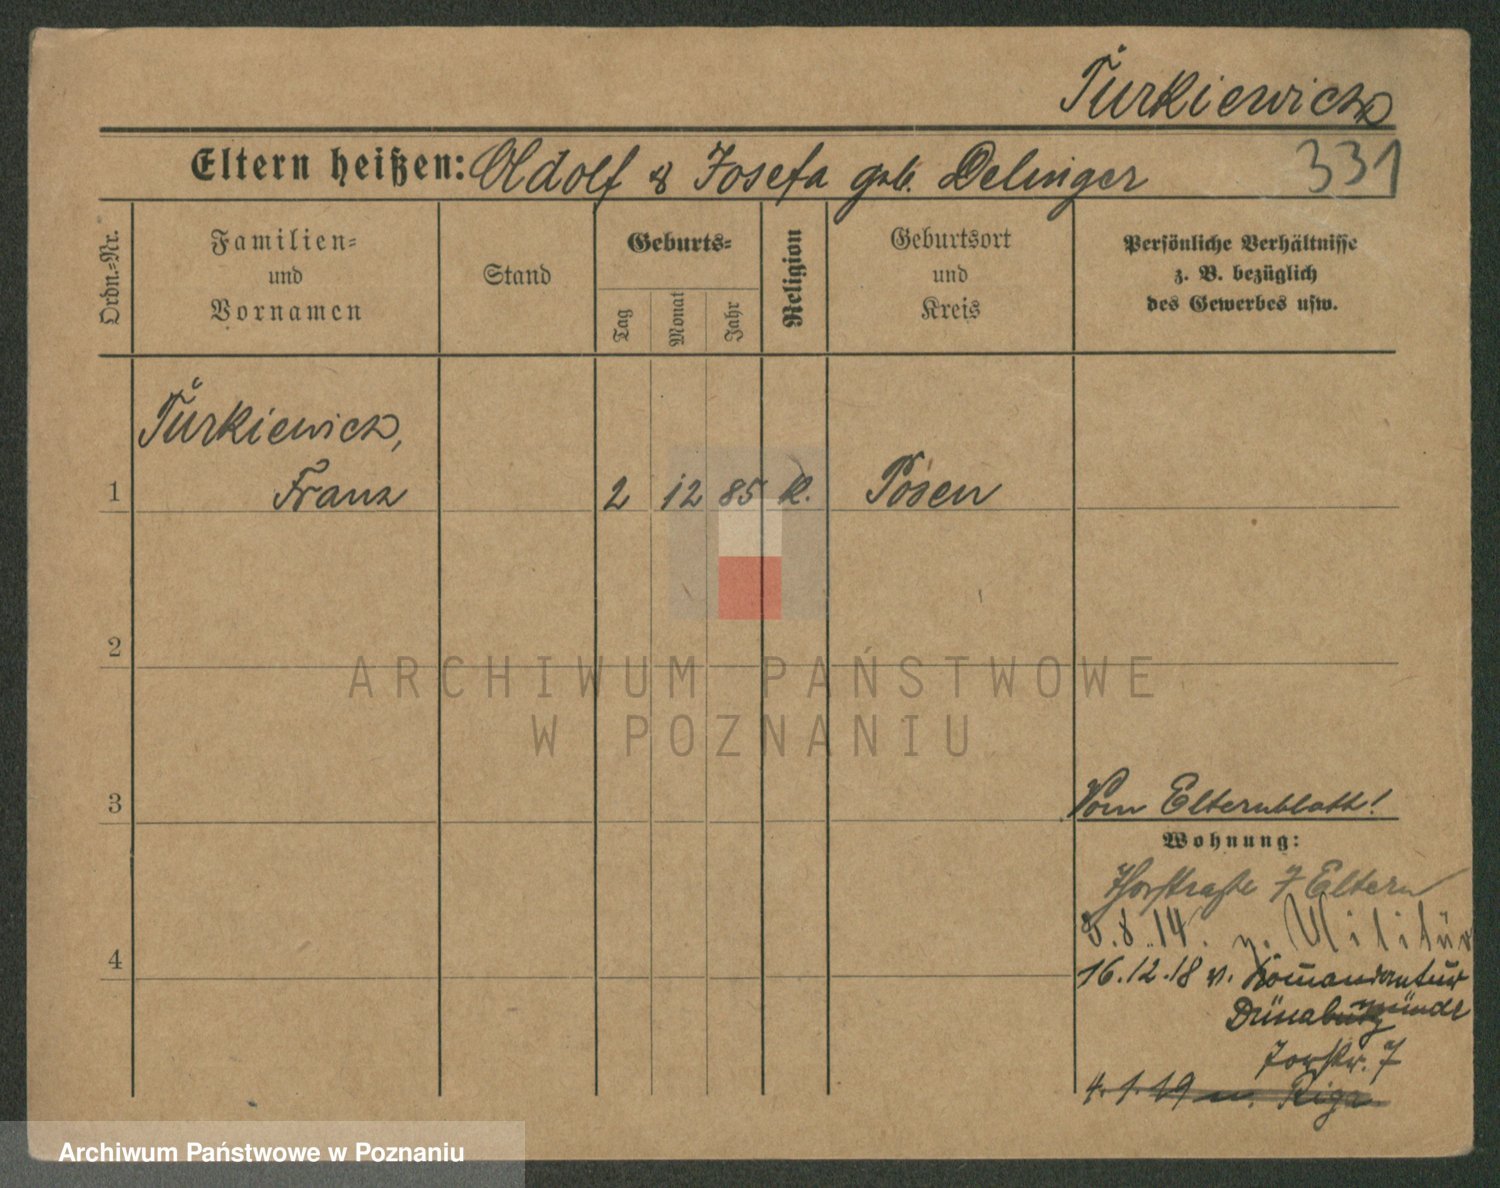 Turkiewicz
Eltern heißen: Adolf & Josefa geb. Delinger 331
Ordn.-Nr.
Familien- und Vornamen
Stand
Geburts-
Tag
Monat
Jahr
Religion
Geburtsort und Kreis
Persönliche Verhältnisse
z. B. bezüglich
des Gewerbes usw.
Turkiewicz,
1 Franz 2 12 85 K. Posen
2
ARCHIWUM PAŃSTWOWE
W POZNANIU
3
Vom Elternblatt!
Wohnung:
7 Eltern
5.8.14. z. Militär
4
16.12.18 v. Komandantur
Dünamünde
7
4.1.19 n. Riga
Archiwum Państwowe w Poznaniu